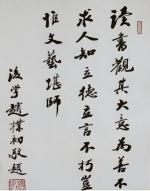 读书观其大意为善不
求人知立德立言不朽岂
惟文艺堪师
后学赵朴初敬题